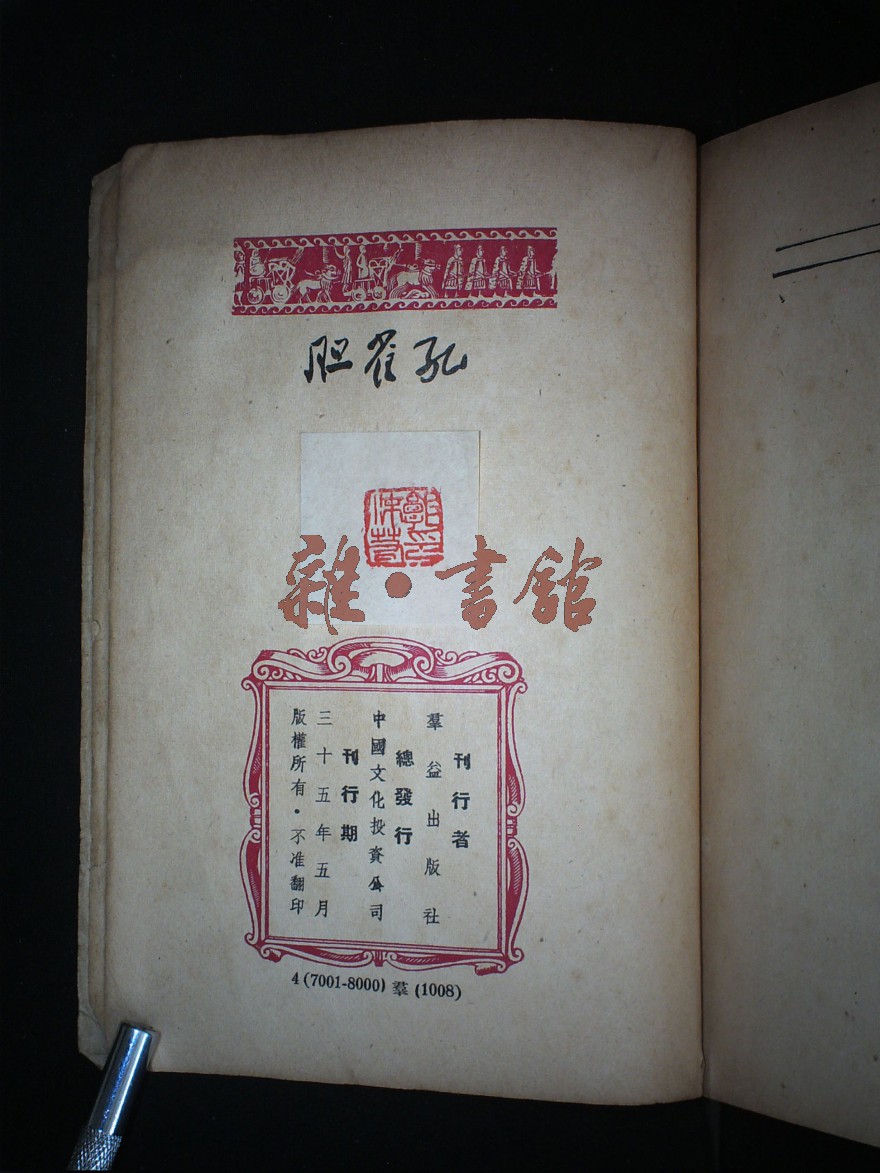 孔雀胆
郭印
沫若
雜·書館
刊行者
羣益出版社
總發行
中國文化投資公司
刊行期
三十五年五月
版權所有·不准翻印
4(7001-8000)羣(1008)